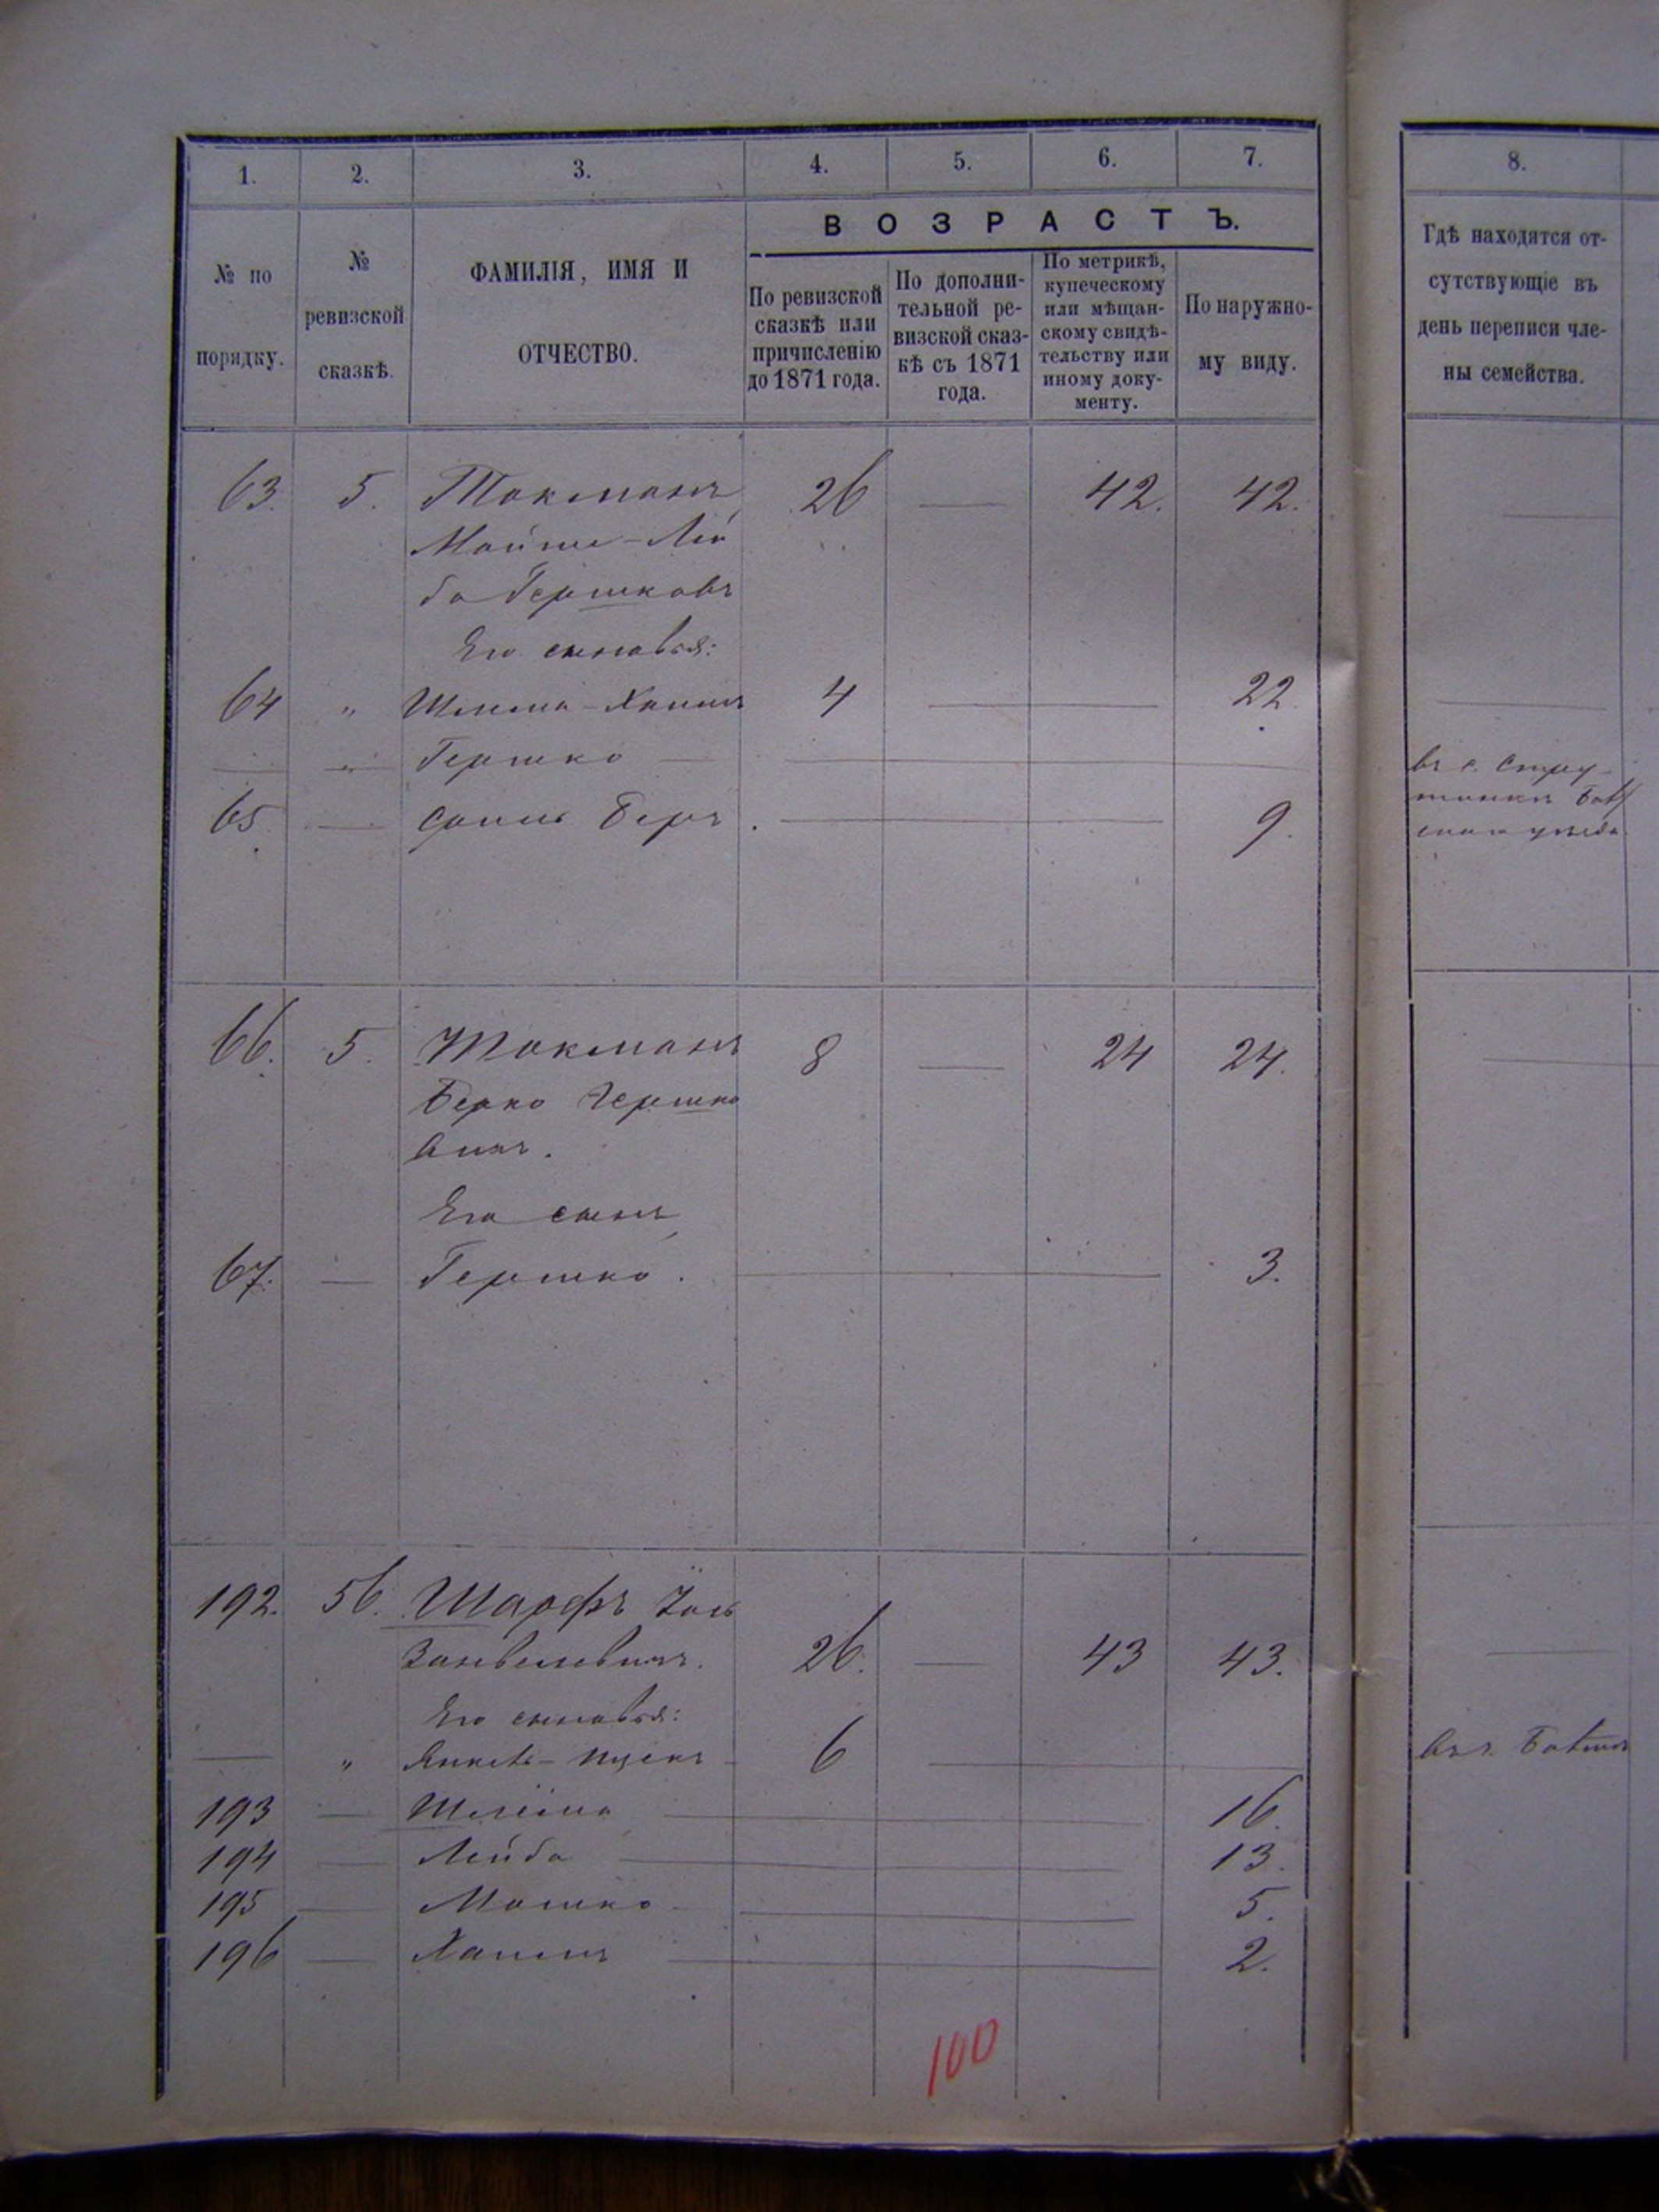 1. 2. 3. 4. 5. 6. 7. 8.
№ по порядку.
№ ревизской сказкѣ.
ФАМИЛІЯ, ИМЯ И ОТЧЕСТВО.
ВОЗРАСТЪ.
По ревизской сказкѣ или причисленію до 1871 года.
По дополнительной ревизской сказкѣ съ 1871 года.
По метрикѣ, купеческому или мѣщанскому свидѣтельству или иному документу.
По наружному виду.
Гдѣ находятся отсутствующіе въ день переписи члены семейства.
63. 5. Токманъ 26 — 42. 42. —
Мойше-Лей
ба Гершковъ
Его сыновья:
64 " Шлема-Хаимъ 4 — 22. —
— " Гершко —
65 — Сруль Беръ — 9.
66. 5. Токманъ 8 — 24 24. —
Берко Гершко
вичъ.
Его сынъ
67. — Гершко. — 3.
192. 56. Шарфъ Іось
Занвелевичъ. 26. — 43 43. —
Его сыновья:
— " Янкель-Ицекъ — 6 —
193 — Шлёма — 16.
194 — Лейба — 13.
195 — Мошко — 5.
196 — Хаимъ — 2.
100